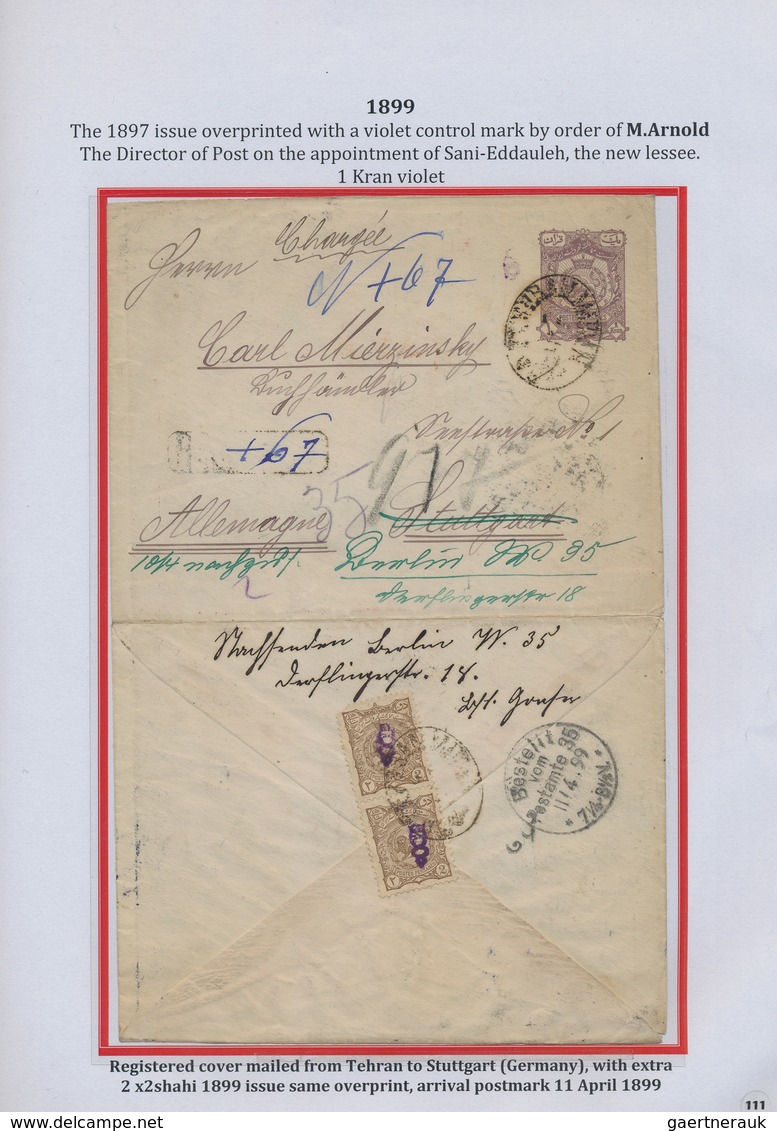 1899
The 1897 issue overprinted with a violet control mark by order of M.Arnold
The Director of Post on the appointment of Sani-Eddauleh, the new lessee.
1 Kran violet
Chargée
Herrn
N +67
Carl Mierzinsky
Buchhändler
Seestraße No 1
+67
35
Allemagne
Stuttgart
Berlin W. 35
Derflingerstr 18
2
Nachsenden Berlin W. 35
Derflingerstr. 18.
2
2
Bestellt
vom
Postamte 35
11/4.99
* 7¼-8½V. *
Registered cover mailed from Tehran to Stuttgart (Germany), with extra
2 x2shahi 1899 issue same overprint, arrival postmark 11 April 1899
111
delcampe.net
gaertnerauk